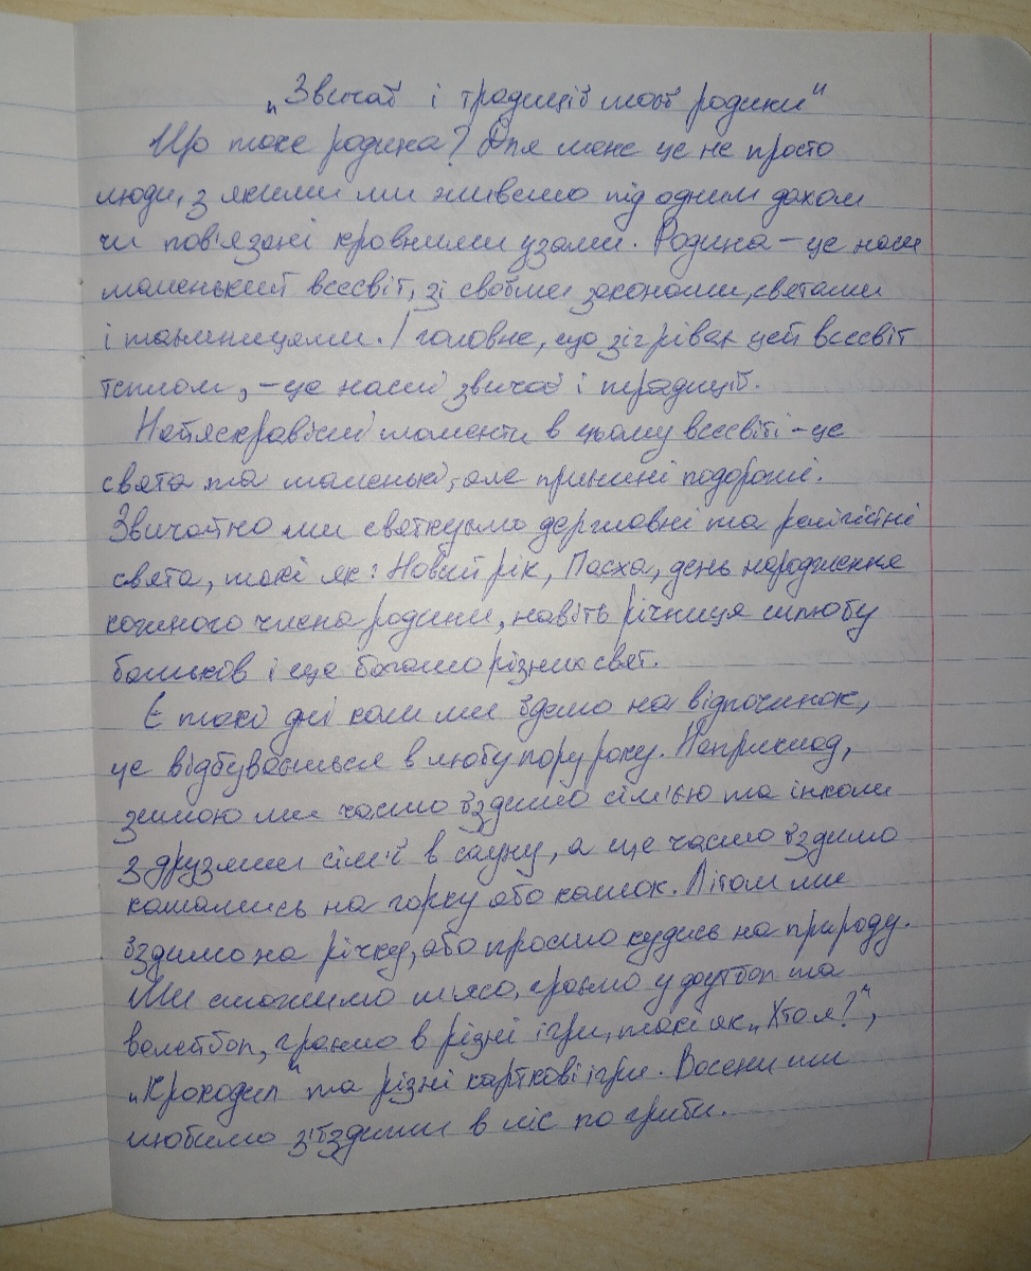 „Звичаї і традиції моєї родини"
Що таке родина? Для мене це не просто
люди, з якими ми живемо під одним дахом
чи пов'язані кровними узами. Родина – це наш
маленький всесвіт, зі своїми законами, святами
і таємницями. І головне, що зігріває цей всесвіт
теплом, – це наші звичаї і традиції.
Найяскравіші моменти в цьому всесвіті – це
свята та маленькі, але приємні подорожі.
Звичайно ми святкуємо державні та релігійні
свята, такі як: Новий рік, Пасха, день народження
кожного члена родини, навіть річниця шлюбу
батьків і ще багато різних свят.
Є такі дні коли ми їдемо на відпочинок,
це відбувається в любу пору року. Наприклад,
зимою ми часто їздимо сім'єю та інколи
з друзями сім'ї в сауну, а ще часто їздимо
катались на горку або каток. Літом ми
їздимо на річку, або просто кудись на природу.
Ми смажимо м'ясо, граємо у футбол та
волейбол, граємо в різні ігри, такі як „Хто я?",
„Крокодил" та різні карткові ігри. Восени ми
любимо з'їздити в ліс по гриби.